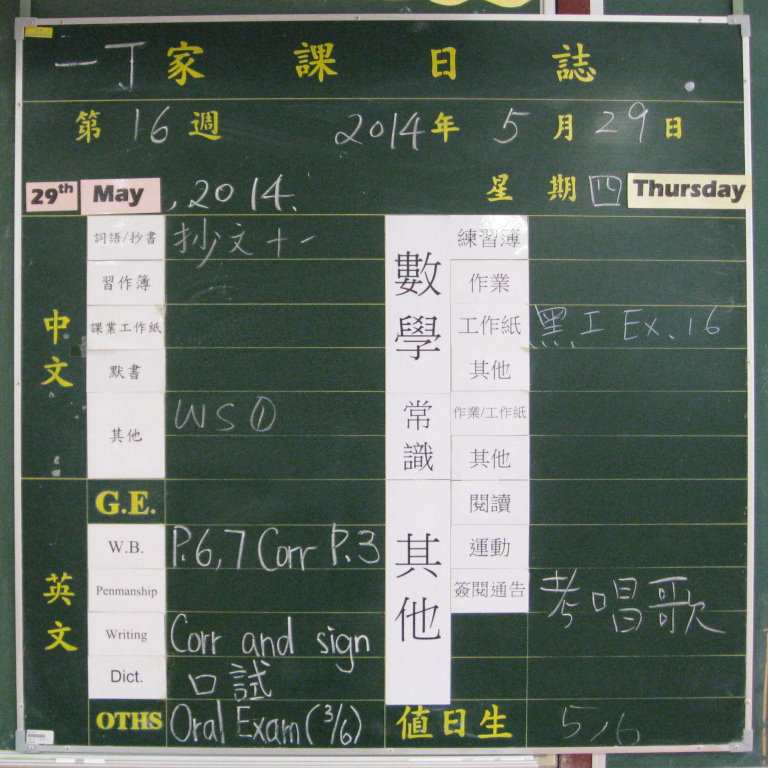 一丁家課日誌
第16週 2014年5月29日
29th May, 2014. 星期四 Thursday
中文
詞語/抄書 抄文十一
習作簿
課業工作紙
默書
其他 WS①
英文
G.E.
W.B. P.6,7 Corr P.3
Penmanship
Writing Corr and sign
Dict. 口試
OTHS Oral Exam (3/6)
數學
練習簿
作業
工作紙 黑工 Ex. 16
其他
常識
作業/工作紙
其他
其他
閱讀
運動
簽閱通告 考唱歌
值日生 5,6